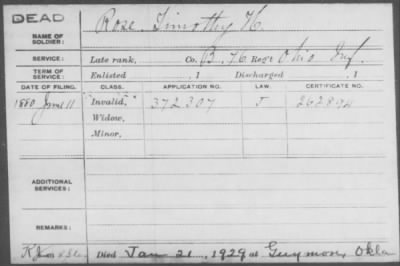 DEAD
NAME OF SOLDIER: Rose, Timothy H.
SERVICE: Late rank, Co. B, 76 Reg't Ohio Inf.
TERM OF SERVICE: Enlisted , 1 Discharged , 1
DATE OF FILING. CLASS. APPLICATION NO. LAW. CERTIFICATE NO.
1880 June 11 Invalid, 372307 262894
Widow,
Minor,
ADDITIONAL SERVICES:
REMARKS:
Died Jan 21, 1929 at Guymon, Okla